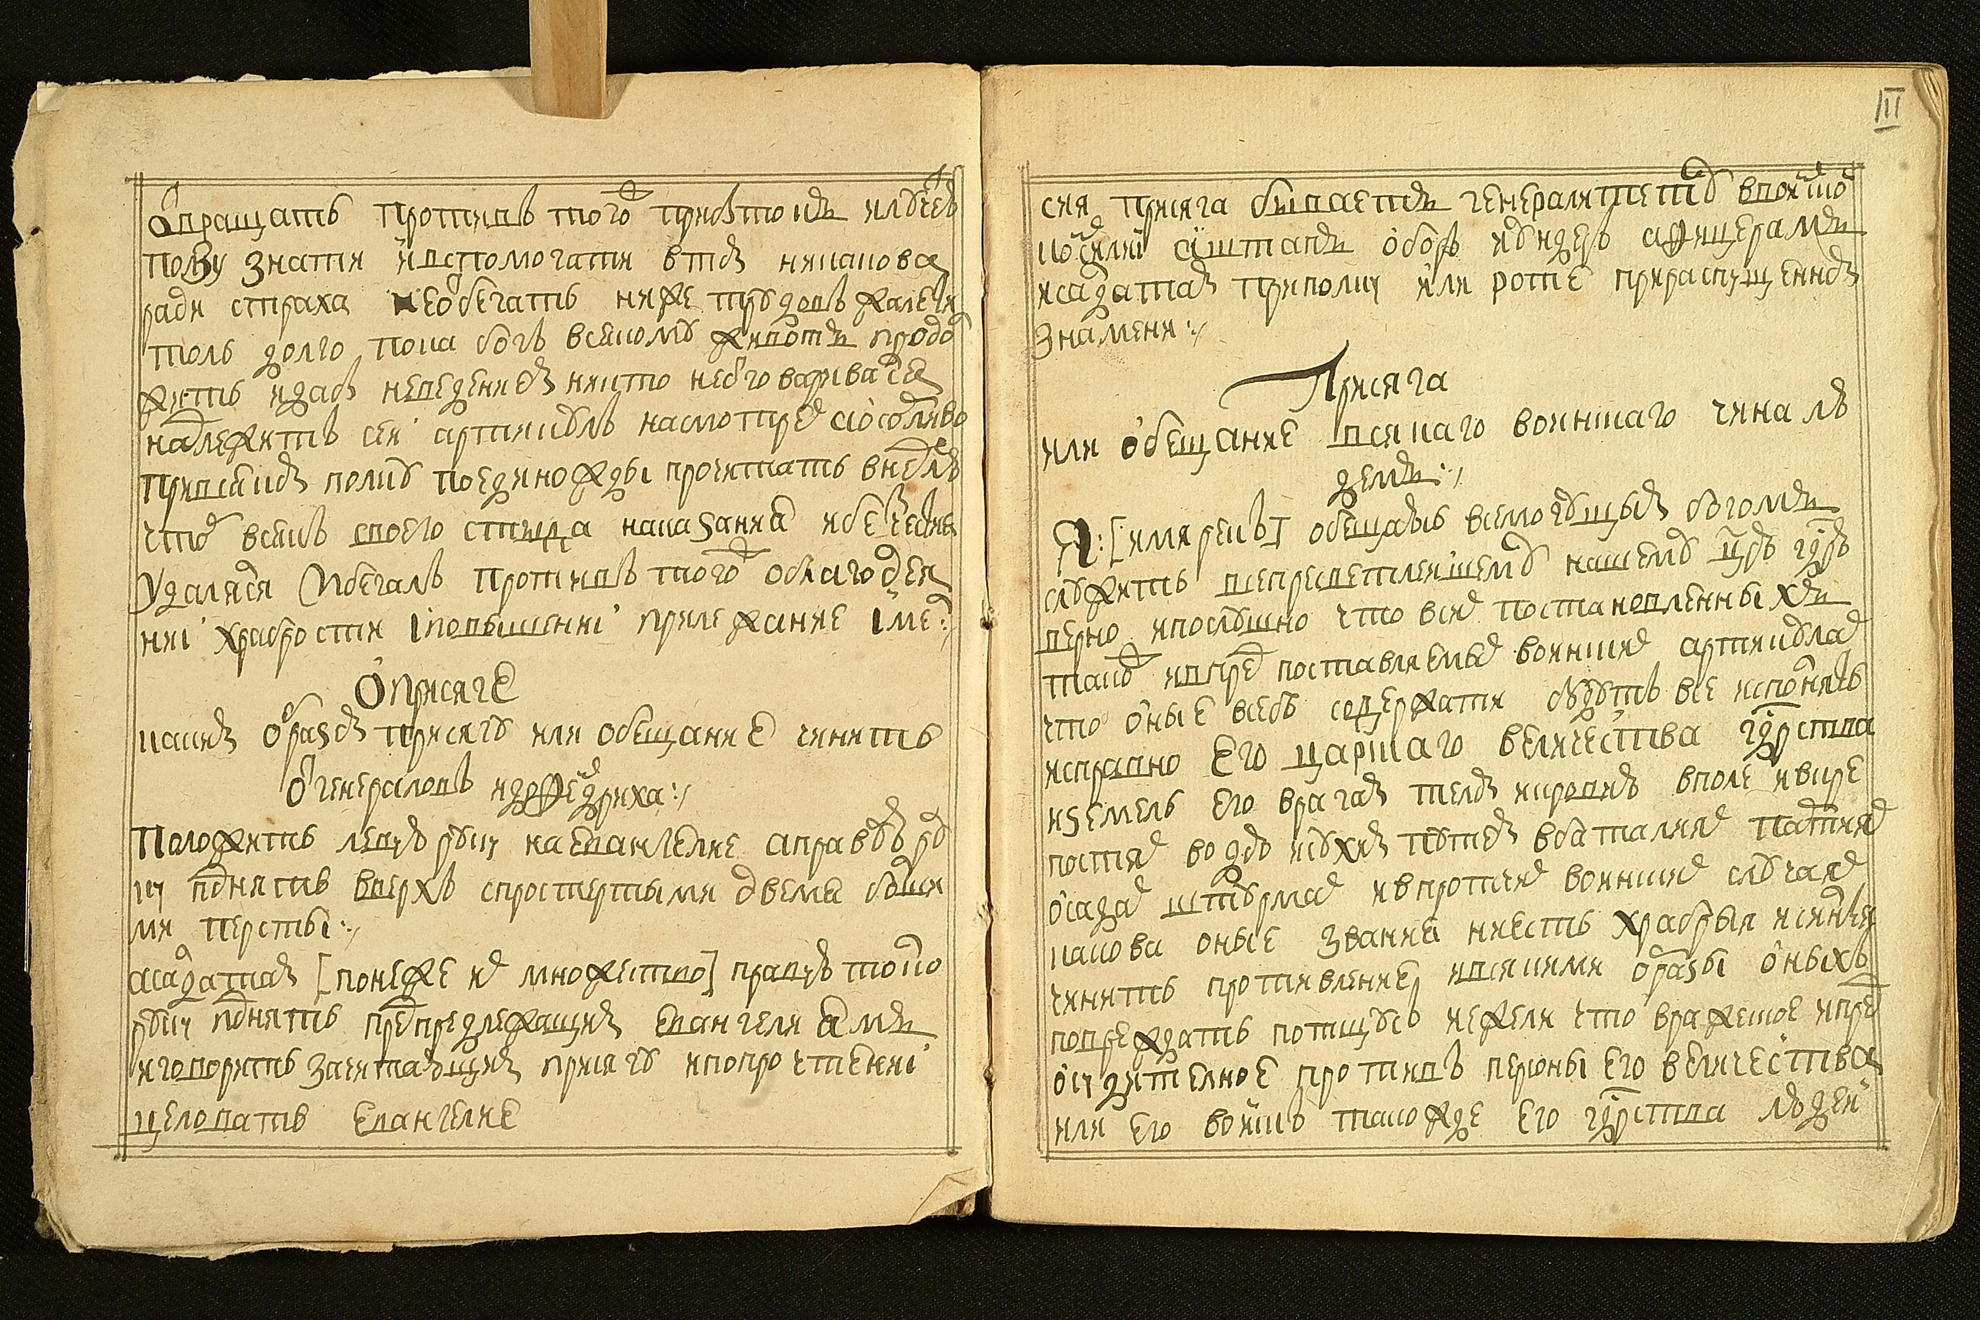 ѿвращать противъ того присътоим илучей
ползу знати ивспомогати втом никакова
ради страха необегать ниже трудовъ жалеѧ
толь долго пока богъ всякому животъ продо
жить идабы неведениемъ никто неоговаривался
надлежитъ сей артикулъ насмотре особливо
привсякомъ полку поединожды прочитать внеделю
чтоб всякъ своего стыда наказания ибесчестия
удалялся ибегалъ противъ того облагодея
нии храбрости иповышении прилежание име:
О присяге
какимъ образомъ присягу или обещание чинить
ѿ генераловъ идофендриха:
Положить левую руку наевангелие аправую ру
ку поднять вверхъ спростертыми двема болши
ми персты:
асолдатамъ [понеже их множество] правую токмо
руку поднять предпредлежащимъ евангелиямъ
иговорить зачитающимъ присягу ипопрочтении
целовать евангелие
III
сия присяга бывает генералитету воинско
или роте прираспущенномъ
знамени:
Присяга
или обещание всякаго воинскаго чина лю
дем:
Я: [имярекъ] обещаюсь всемогущымъ богом
служить всепресветлейшему нашему црю гдрю
верно ипослушно что всих постановленных
такоже ивпред поставляемых воинских артикулах
что оные всебе содержати будутъ все исполнять
исправно Его царскаго величества гдрства
иземель его врагамъ теломъ икровию вполе ивкре
постях водою исухимъ путемъ вбаталиях партиях
осадах штурмах ивпротчих воинских случаях
какова оные звания ниесть храброе исилное
чинить противление ивсякими образы оныхъ
повреждать потщусь иежели что вражеское ипред
осудителное противъ персоны его величества
или его войскъ такожде его гдрства людей